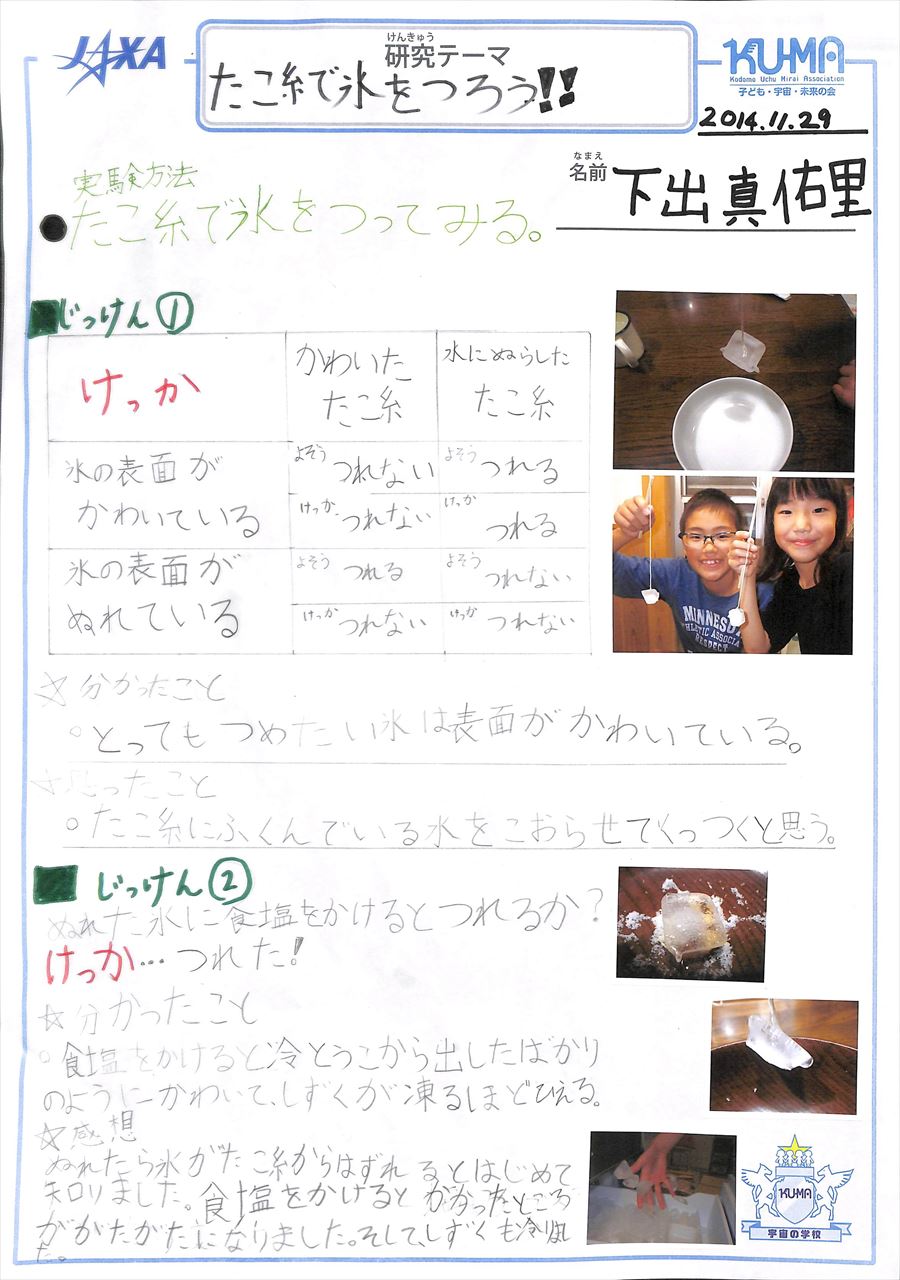 JAXA
けんきゅう
研究テーマ
たこ糸で氷をつろう!!
KU-MA
Kodomo Uchu Mirai Association
子ども・宇宙・未来の会
2014.11.29
なまえ
名前 下出真佑里
実験方法
●たこ糸で氷をつってみる。
■じっけん①
けっか
かわいた
たこ糸
水にぬらした
たこ糸
氷の表面が
かわいている
よそう つれない
よそう つれる
けっか つれない
けっか つれる
氷の表面が
ぬれている
よそう つれる
よそう つれない
けっか つれない
けっか つれない
MINNESO
THLETIC ASSOCIA
RESPECT
☆分かったこと
○とってもつめたい氷は表面がかわいている。
☆思ったこと
○たこ糸にふくんでいる水をこおらせてくっつくと思う。
■じっけん②
ぬれた氷に食塩をかけるとつれるか？
けっか…つれた!
☆分かったこと
○食塩をかけると冷とうこから出したばかり
のようにかわいて、しずくが凍るほどひえる。
☆感想
ぬれたら氷がたこ糸からはずれるとはじめて
知りました。食塩をかけるとかかったところ
ががたがたになりました。そして、しずくも冷り
た。
KU-MA
宇宙の学校